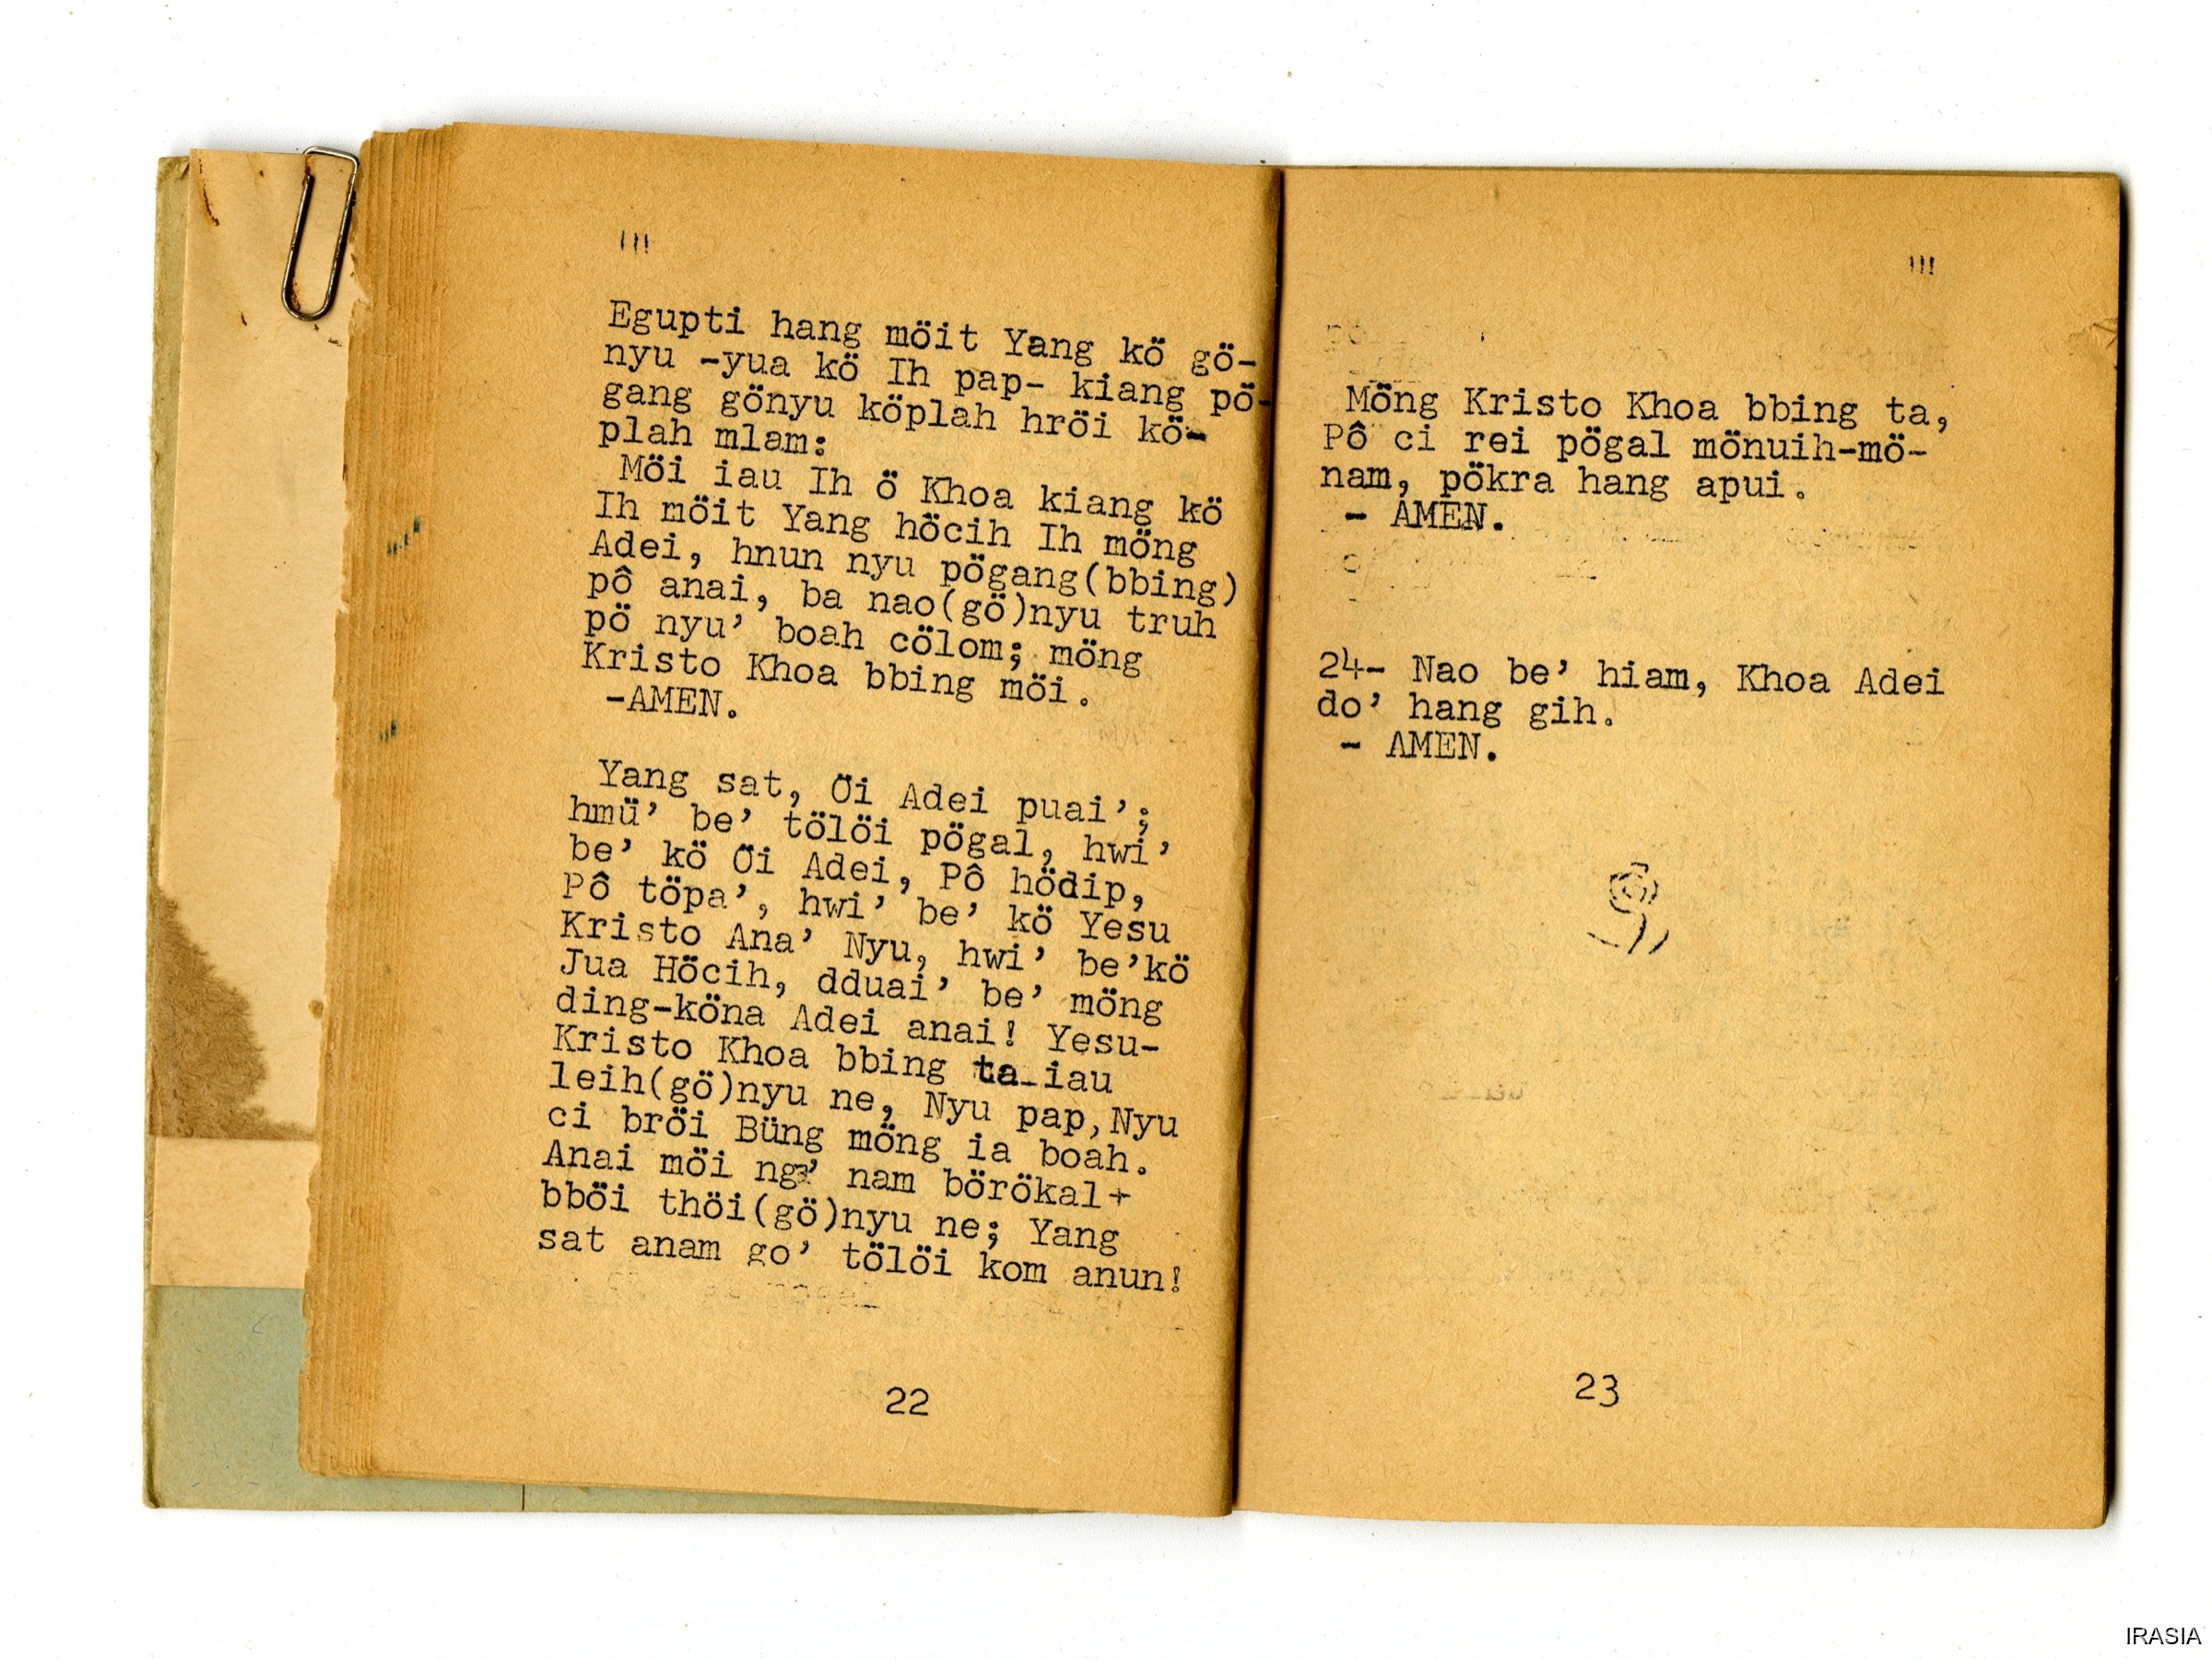 !!!
Egupti hang möit Yang kö gö-
nyu -yua kö Ih pap- kiang pö-
gang gönyu köplah hröi kö-
plah mlam:
Möi iau Ih ö Khoa kiang kö
Ih möit Yang höcih Ih möng
Adei, hnun nyu pögang(bbing)
pô anai, ba nao(gö)nyu truh
pö nyu’ boah cölom; möng
Kristo Khoa bbing möi.
-AMEN.
Yang sat, Öi Adei puai’;
hmü’ be’ tölöi pögal, hwi’
be’ kö Öi Adei, Pô hödip,
Pô töpa’, hwi’ be’ kö Yesu
Kristo Ana’ Nyu, hwi’ be’kö
Jua Höcih, dduai’ be’ möng
ding-köna Adei anai! Yesu-
Kristo Khoa bbing ta-iau
leih(gö)nyu ne, Nyu pap,Nyu
ci bröi Büng möng ia boah.
Anai möi nga’ nam börökal+
bböi thöi(gö)nyu ne; Yang
sat anam go’ tölöi kom anun!
22
!!!
Möng Kristo Khoa bbing ta,
Pô ci rei pögal mönuih-mö-
nam, pökra hang apui.
- AMEN.
24- Nao be’ hiam, Khoa Adei
do’ hang gih.
- AMEN.
23
IRASIA